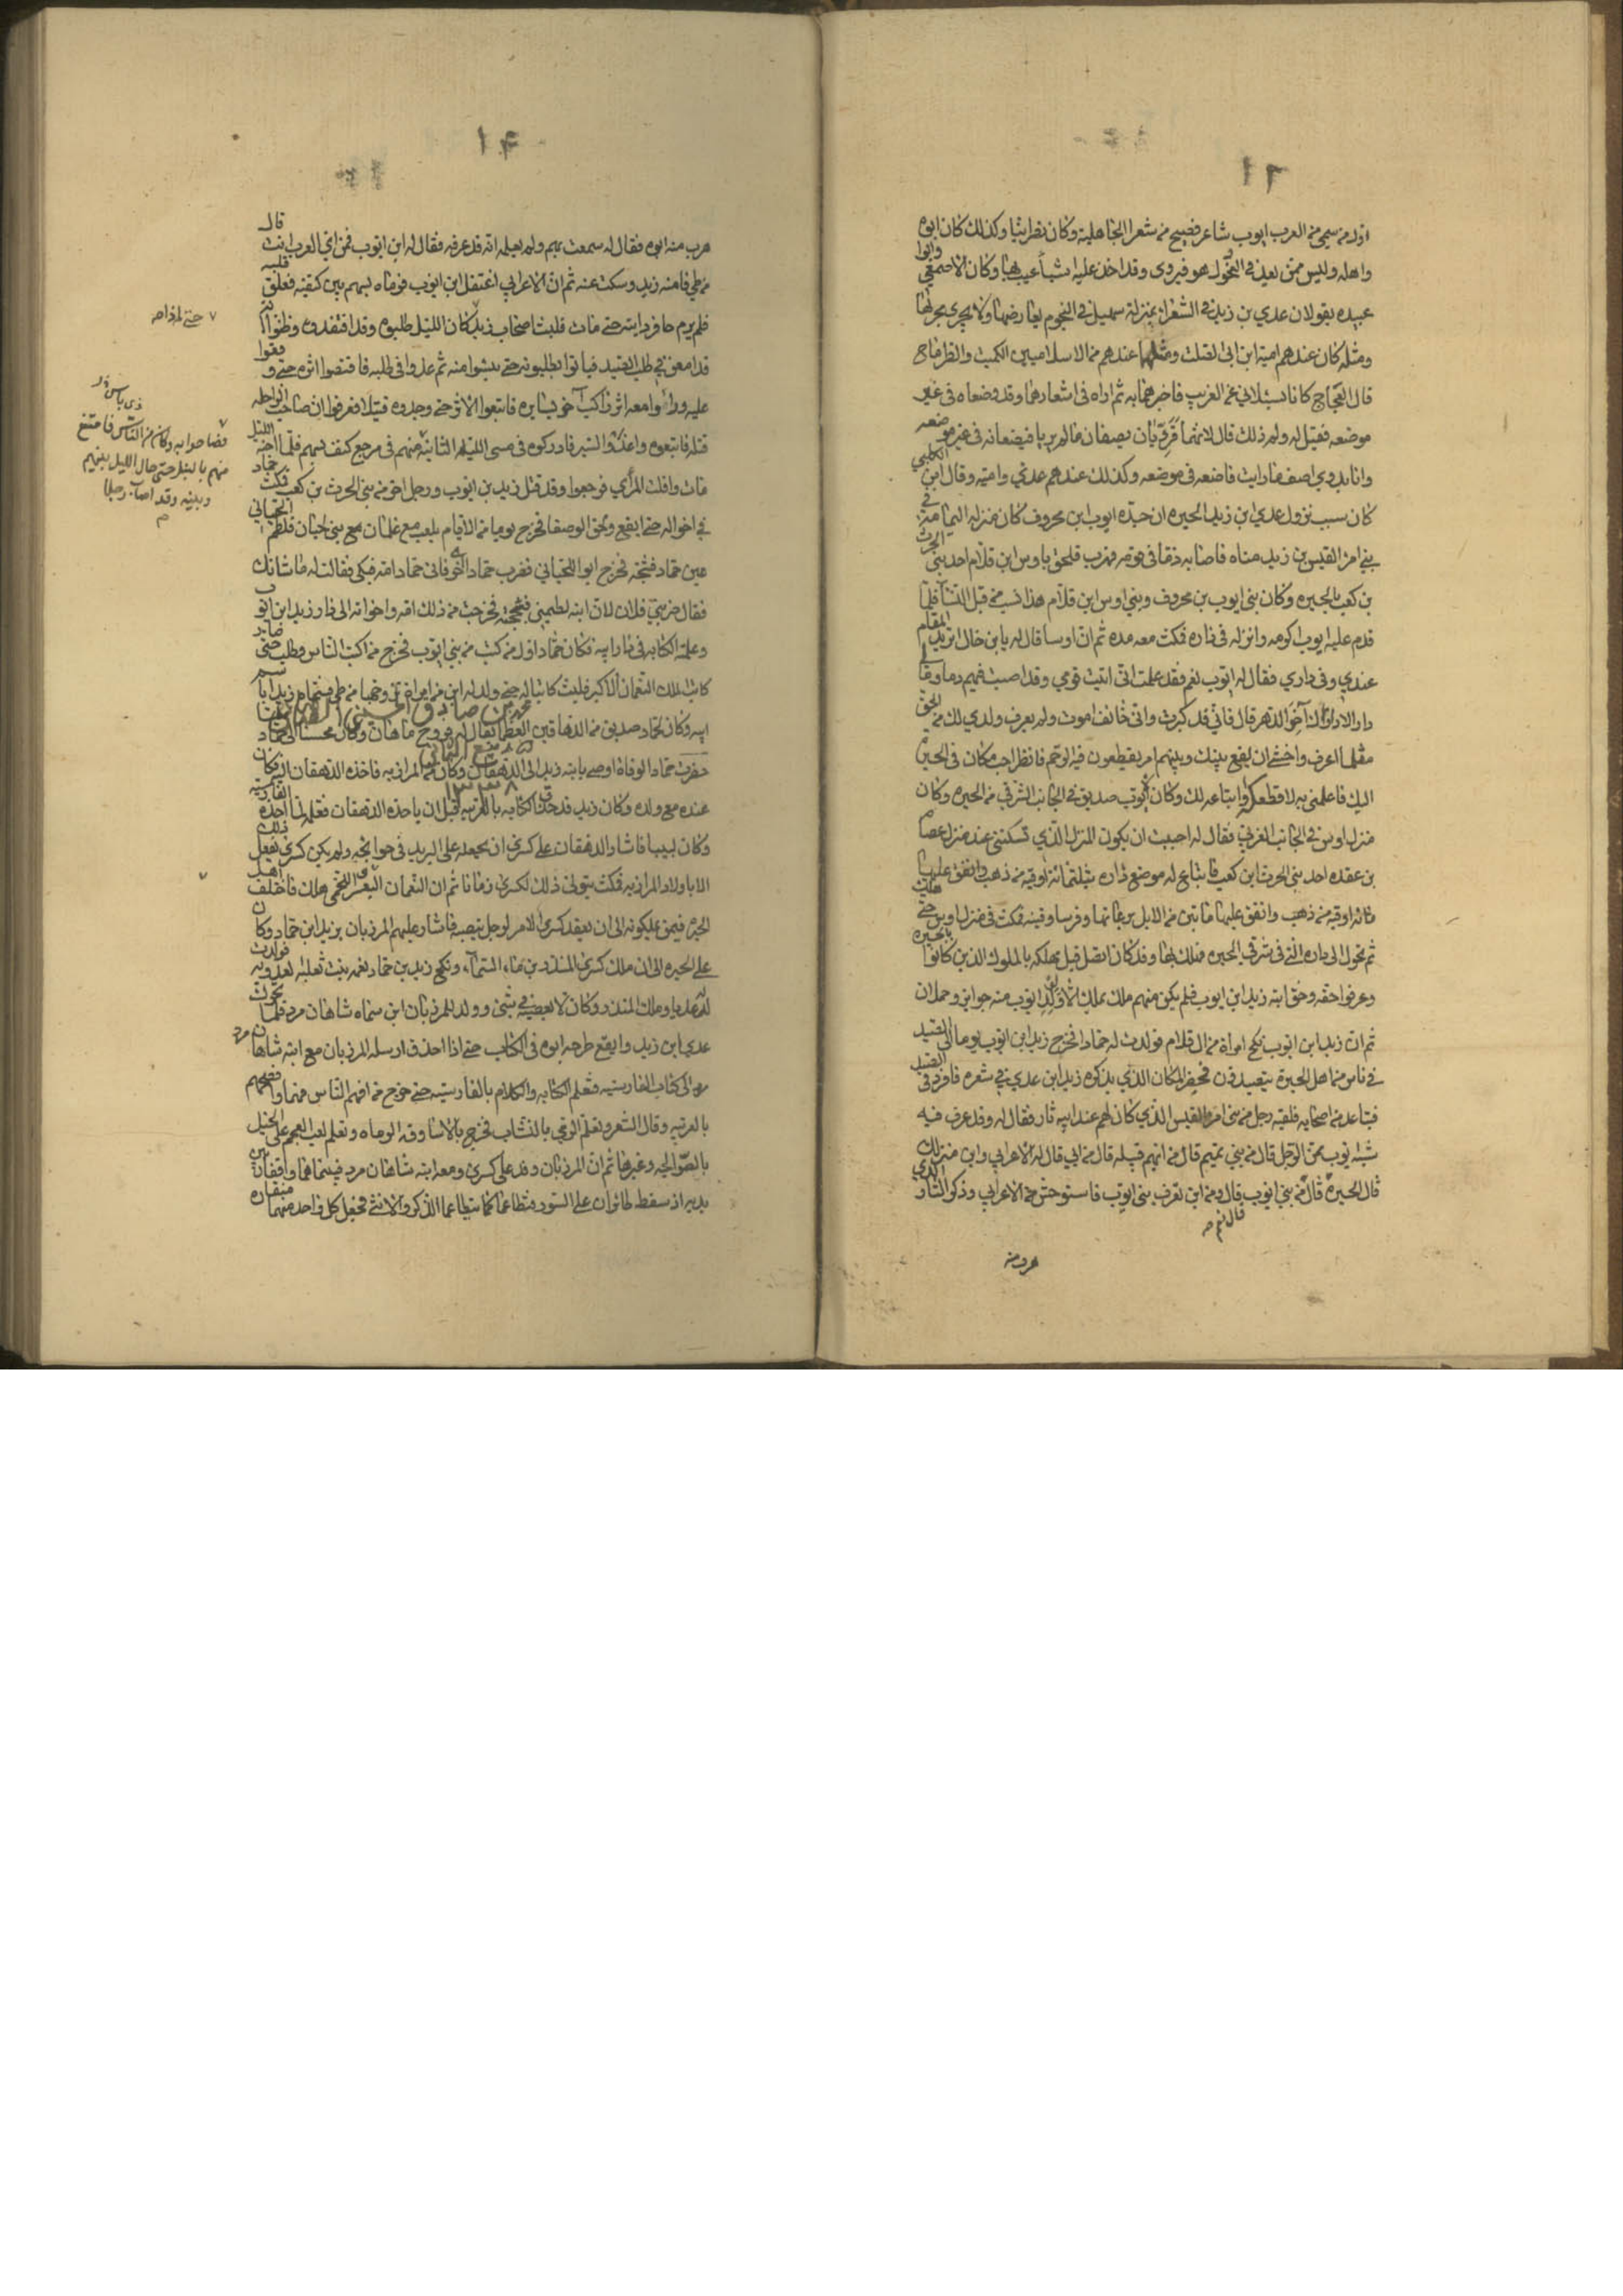 ١٦
اول من سمي من العرب ايوب شاعر فصيح من شعرا الجاهلية وكان نصرانيا وكذلك كان ابوه
واهله وليس ممن يعد في الفحول هو قروى وقد اخذ عليه اشيأ عيب بها وكان الاصمعي وابوا
عبيده يقولان عدي بن زيد في الشعرا بمنزلة سهيل في النجوم يعارضها ولا يجرى مجراها
ومثله كان عندهم امية ابن ابي الصلت ومثلهما عندهم من الاسلاميين الكميت والطرماح
قال العجاج كانا يسئلاني عن الغريب فاخبرهما به ثم اراه في اشعارهما وقد وضعاه في غير
موضعه فقيل له ولم ذلك قال لانهما قرويان يصفان مالم يريا فيضعانه في غير موضعه
وانا بدوي اصف مارايت فاضعه في موضعه وكذلك عندهم عدي وامية وقال ابن الكلبي
كان سبب نزول عدي ابن زيد الحيره ان جده ايوب ابن محروف كان منزله اليمامة في
بني امرا القيس بن زيد مناه فاصاب دما في قومه فهرب فلحق باوس ابن قلام احد بني الحرث
بن كعب بالحيره وكان بني ايوب بن محروف وبني اوس ابن قلام هذا نسب من قبل النسآ فلما
قدم عليه ايوب اكرمه وانزله في داره فمكث معه مده ثم ان اوسا قال له يابن خال اتريد المقام
عندي وفى داري فقال له ايوب نعم فقد علمت اني اتيت قومي وقد اصبت فيهم دما وما لي
دار الا دارك آخر الدهر قال فاني قد كبرت واني خائف اموت ولم يعرف ولدي لك من الحق
مثلما اعرف واخشى ان يقع بينك وبينهم امر يقطعون فيه الرحم فانظر احب مكان في الحيره
اليك فاعلمني به لاقطعكه او ابتاعه لك وكان لايوب صديق في الجانب الشرقي من الحيره وكان
منزل اوس في الجانب الغربي فقال له احببت ان يكون المنزل الذي تسكنني عند منزل عصام
بن عقده احد بني الحرث ابن كعب فابتاع له موضع داره بثلثمائة اوقيه من ذهب وانفق عليها
مائة اوقيه من ذهب وانفق عليها مائتين من الابل برعائها وفرسا وقينه فمكث في منزل اوس حتى هلك
ثم تحول الى داره التى في شرقي الحيره فهلك بها وقد كان اتصل قبل مهلكه بالملوك الذين كانوا بالحيره
وعرفوا حقه وحق ابنه زيد ابن ايوب فلم يكن منهم ملك يملك الا ولولد ايوب منه جوايز وحملان
ثم ان زيد ابن ايوب نكح امراة من ال قلام فولدت له حمادا فخرج زيد ابن ايوب يوما الى الصيد
في ناس من اهل الحيرة يتصيدون بحفير المكان الذي يذكره زيد ابن عدي في شعره فانفرد في الصيد
فتباعد من اصحابه فلقيه رجل من بني امرا القيس الذي كان لهم عند ابيه ثار فقال له وقد عرف فيه
شبه ايوب ممن الرجل قال من بني تميم قال من ايهم قبيله قال من ابي قال له الاعرابي واين منزلك
قال الحيرة قال من بني ايوب قال ومن اين تعرف بني ايوب فاستوحش من الاعرابي وذكر الثار الذي
قال نعم صح
هرب منه
١٤
هرب منه ابوه فقال له سمعت بهم ولم يعلمه انه قد عرفه فقال له ابن ايوب فمن اي العرب انت قال
من طي فامنه زيد وسكت عنه ثم ان الاعرابي اغتفل ابن ايوب فرماه بسهم بين كتفيه ففلق قلبه
فلم يرم حافر دابته حتى مات فلبث اصحاب زيد كان الليل طلبوه وقد افتقدوه وظنوا انه
قد امعن في طلب الصيد فباتوا يطلبونه حتى يئسوا منه ثم غدوا في طلبه فاقتصوا اثره حتى وقفوا
عليه وراوا معه اثر راكب آخر يسايره فاتبعوا الاثر حتى وجدوه قتيلا فعرفوا ان صاحب الراحله
قتله فاتبعوه واغذوا السير فادركوه في مسى الليله الثانيه منهم في مرجع كتفه بسهم فلما اجنه الليل
مات وافلت الرامي فرجعوا وقد قتل زيد بن ايوب ورجل اخر من بني الحرث بن كعب فمكث حماد
في اخواله حتى ايفع ولحق الوصفا فخرج يوما من الايام يلعب مع غلمان مع بني لحيان فلطم اللحياني
عين حماد فشجه فخرج ابو اللحياني فضرب حماد فاتى حماد امه فبكى فقالت له ما شانك
فقال ضربني فلان لان ابنه لطمني فشججته فخرجت من ذلك امه واخواته الى دار زيد ابن ايوب
وعلمته الكتابه في دار ابيه فكان حماد اول من كتب من بني ايوب فخرج من اكتب الناس وطلب حتى صار
كاتب الملك النعمان الاكبر فلبث كاتبا له حتى ولد له ابن من امراة تزوجها من طي فسماه زيد باسم
ابيه وكان لحماد صديق من الدهاقين العظما يقال له فروخ ماهان وكان محسنا الى حماد
حضرت حماد الوفاة اوصى بابنه زيد الى الدهقان وكان من المرازبه فاخذه الدهقان اليه وكان
عنده مع ولده وكان زيد قد حذق الكتابه بالعربيه قبل ان ياخذه الدهقان فعلمه لما اخذه الفارسيه
وكان لبيبا فاشار الدهقان على كسرى ان يجعله على البريد في حوايجه ولم يكن كسرى يفعل ذلك
الا باولاد المرازبه فمكث يتولى ذلك لكسرى زمانا ثم ان النعمان اللخمي هلك فاختلف اهل
الحيره فيمن يملكونه الى ان يعقد كسرى الامر لرجل ينصبه فاشار عليهم المرزبان بزيد ابن حماد وكان
على الحيره الى ان ملك كسرى المنذر بن مآء السمآء ونكح زيد بن حماد نعمه بنت ثعلبه العدويه فولدت
له عديا وملك المنذر وكان لا يعصيه في شئ وولد للمرزبان ابن سماه شاهان مرد فلما تحرك
عدي ابن زيد وايفع طرحه ابوه في الكتاب حتى اذا احذق ارسله المرزبان مع ابنه شاهان مرد
الى كتاب الفارسيه فتعلم الكتابه والكلام بالفارسيه حتى خرج من افهم الناس فهما وافصحهم
بالعربيه وقال الشعر وتعلم الرمي بالنشاب فخرج بالاساورة الرماه وتعلم لعب العجم على الخيل
بالصوالجه وغيرها ثم ان المرزبان وفد على كسرى ومعه ابنه شاهان مرد فبينما هما واقفان بين
يديه اذ سقط طائران على السور فتطاعما كما يتطاعما الذكر والانثى فجعل كل واحد منهما منقاره
محمد بن صادق
ربيع الثاني
١٣٣٨
٧ حتى اذا صح
ذي باس
فصاحوا به وكان من الناس فامتنع
منهم بالنبل حتى حال الليل بينهم
وبينه وقد اصاب رجلا
م